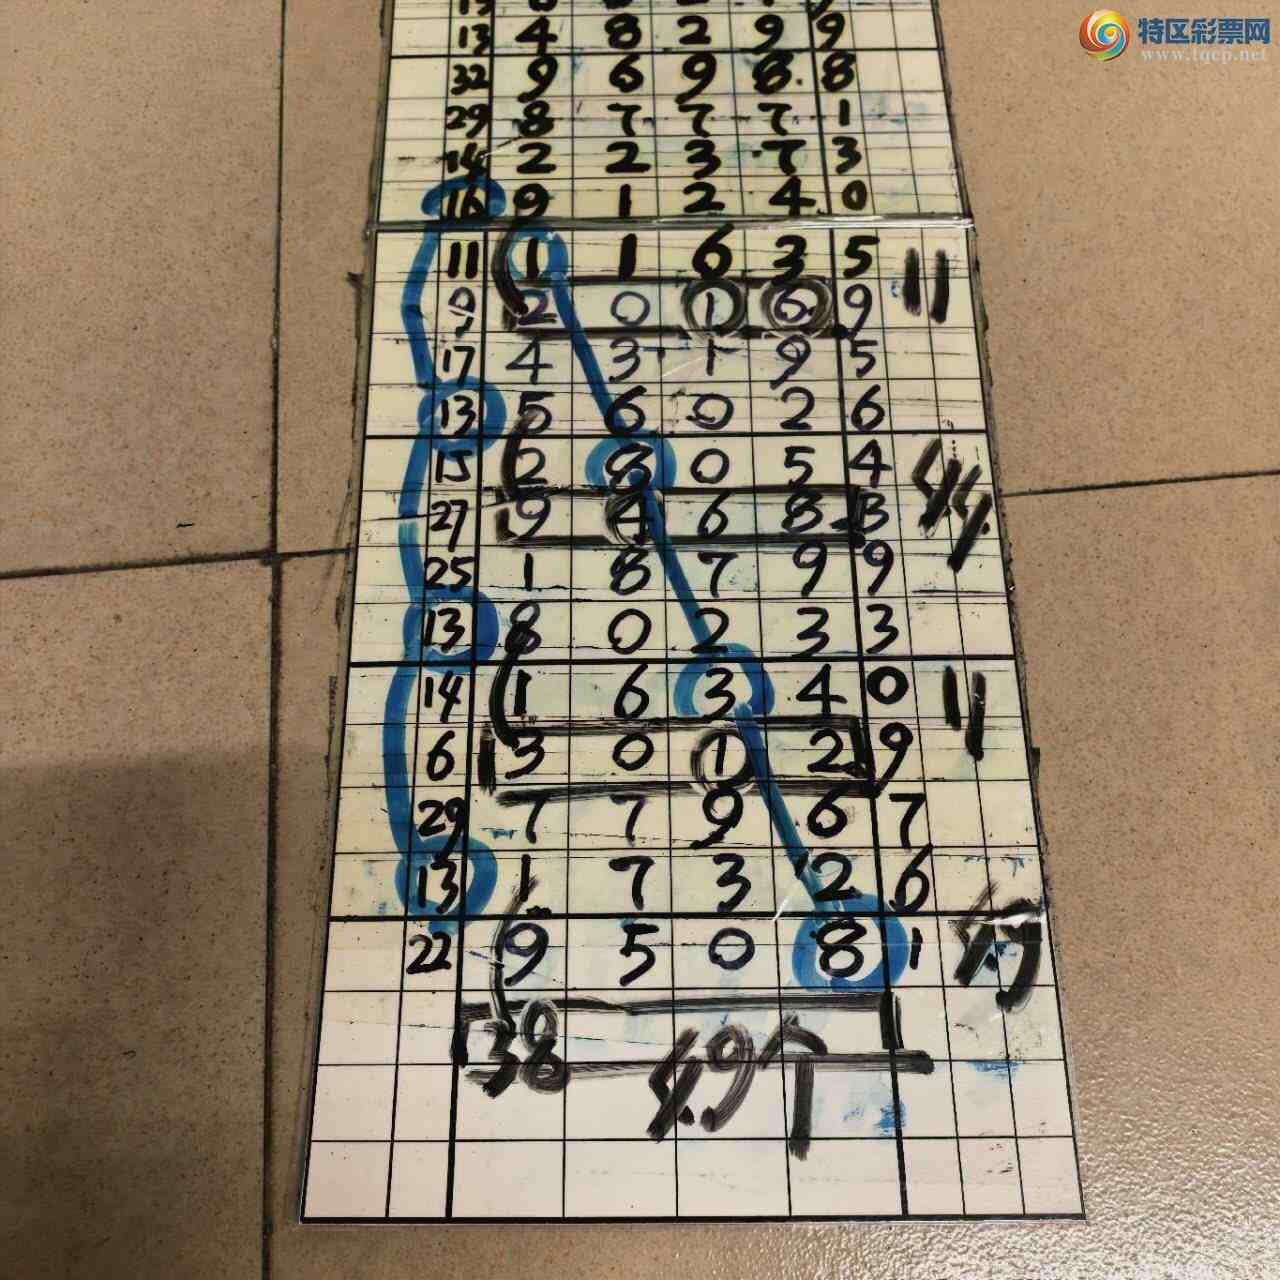 特区彩票网
www.tqcp.net
13 4 8 2 9 9
32 9 6 9 8 8
29 8 7 7 7 1
14 2 2 3 7 3
16 9 1 2 4 0
11 1 1 6 3 5 11
9 2 0 1 6 9
17 4 3 1 9 5
13 5 6 0 2 6
15 2 8 0 5 4 44
27 9 4 6 8 3
25 1 8 7 9 9
13 8 0 2 3 3
14 1 6 3 4 0 11
6 3 0 1 2 9
29 7 7 9 6 7
13 1 7 3 2 6
22 9 5 0 8 1 49
38 4.9个